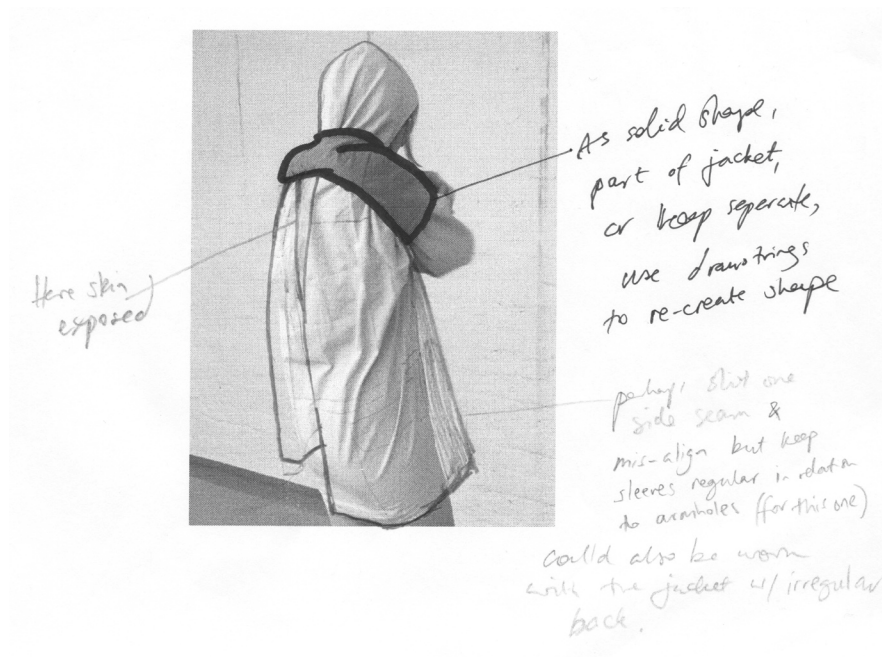 As solid shape,
part of jacket,
or keep seperate,
use drawstrings
to re-create shape
Here skin
exposed
perhaps slit one
side seam &
mis-align but keep
sleeves regular in relation
to armholes (for this one)
could also be worn
with the jacket w/ irregular
back.